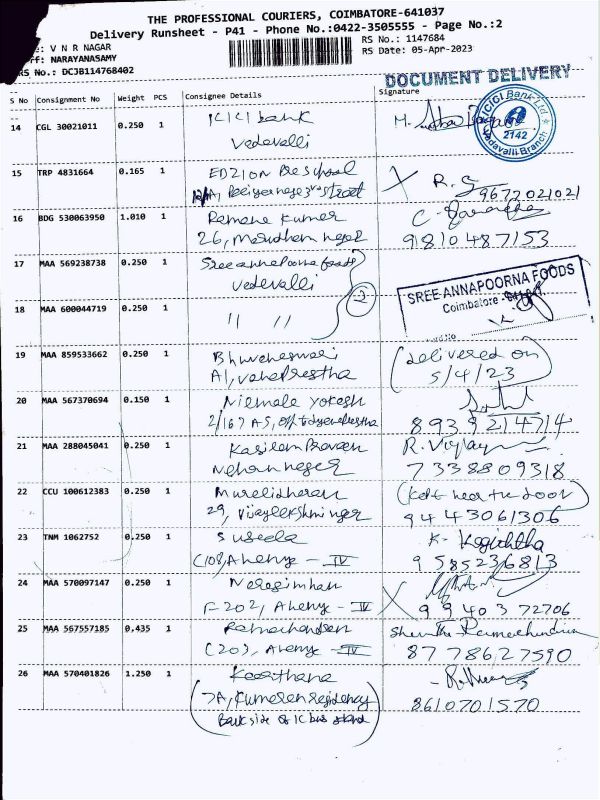 THE PROFESSIONAL COURIERS, COIMBATORE-641037
Delivery Runsheet - P41 - Phone No.:0422-3505555 - Page No.:2
: V N R NAGAR
RS No.: 1147684
ff: NARAYANASAMY
RS Date: 05-Apr-2023
RS No.: DCJB114768402
DOCUMENT DELIVERY
S No Consignment No Weight PCS Consignee Details Signature
14 CGL 30021011 0.250 1 ICICI bank
Vedavalli
ICICI Bank Ltd.
2142
Vadavalli Branch
15 TRP 4831664 0.165 1 EDZION Pre School
street
R.S
9677021021
16 BDG 530063950 1.010 1 Ramana Kumar
26, Marudham nagar
9810487153
17 MAA 569238738 0.250 1 Sree annapoorna foods
Vedavalli
2
SREE ANNAPOORNA FOODS
Coimbatore -
18 MAA 600044719 0.250 1 11 11
19 MAA 859533662 0.250 1 Bhuvaneswari
A1,
(delivered on
5/4/23)
20 MAA 567370694 0.150 1 Nirmala Yokesh
2/167 A5,
8939214714
21 MAA 288045041 0.250 1 Kasilam Praveen
Nehru nagar
7338809318
22 CCU 100612383 0.250 1 Muralidharan
29, Vijaylakshmi nagar
(kept near the door)
9443061306
23 TNM 1062752 0.250 1 Suseela
C108, - IV
K-
9585236813
24 MAA 570097147 0.250 1 Narasimhan
F-202, - IV
9940372706
25 MAA 567557185 0.435 1 Ramachandran
C203, - IV
Shantha Ramachandran
8778627590
26 MAA 570401826 1.250 1 Keerthana
7A, Kumaran residency
Back side of IC bus stand
8610701570